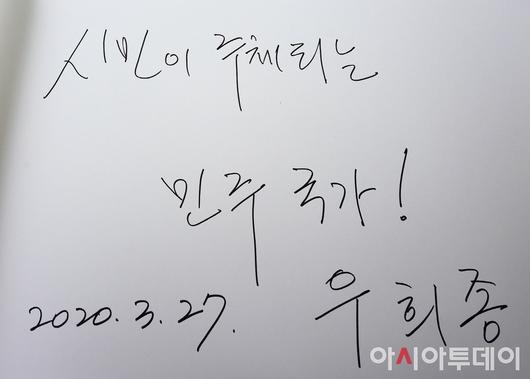 시민이 주체되는
민주 국가!
2020. 3. 27. 우희종
아시아투데이